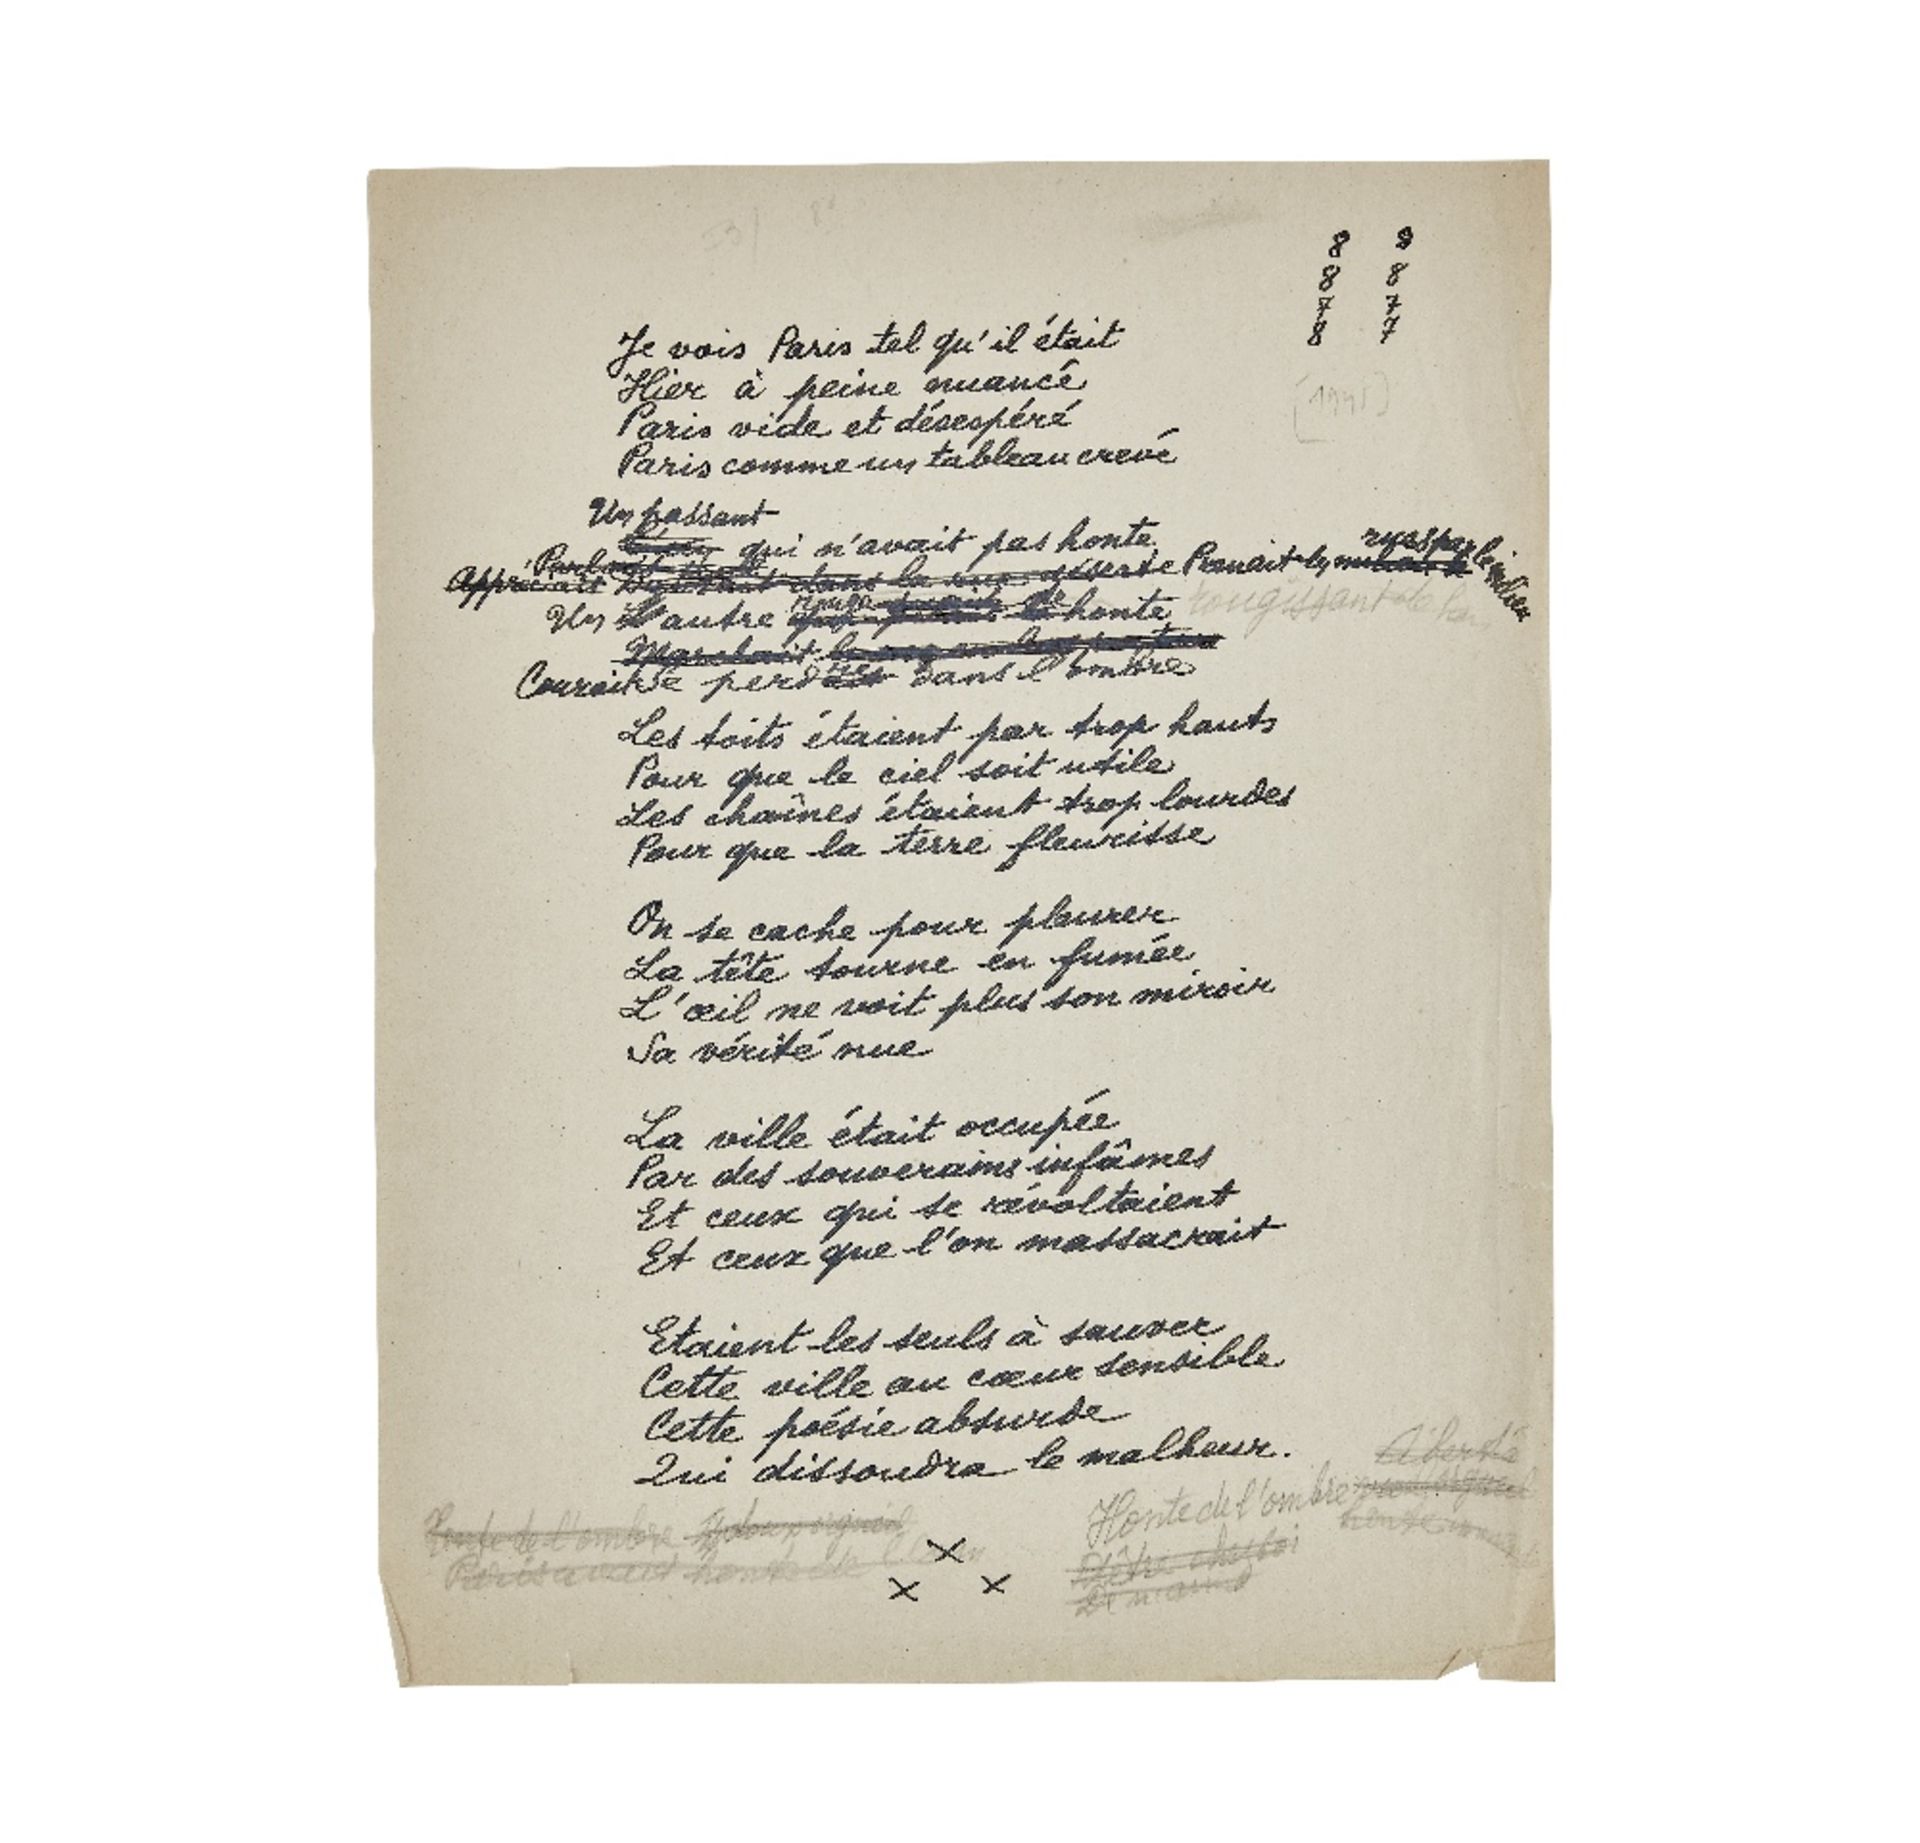 8 9
8 8
7 7
8 7
Je vois Paris tel qu'il était
Hier à peine nuancé
Paris vide et désespéré
Paris comme un tableau crevé
Un passant
qui n'avait pas honte
Appréciait la rue déserte Prenait les rues par le milieu
Un autre rouge de honte
rougissant de
Marchait
Courait se perdre dans l'ombre
Les toits étaient par trop hauts
Pour que le ciel soit utile
Les chaînes étaient trop lourdes
Pour que la terre fleurisse
On se cache pour pleurer
La tête tourne en fumée
L'œil ne voit plus son miroir
Sa vérité nue
La ville était occupée
Par des souverains infâmes
Et ceux qui se révoltaient
Et ceux que l'on massacrait
Etaient les seuls à sauver
Cette ville au cœur sensible
Cette poésie absurde
Qui dissoudra le malheur.
Honte de l'ombre
x
x x